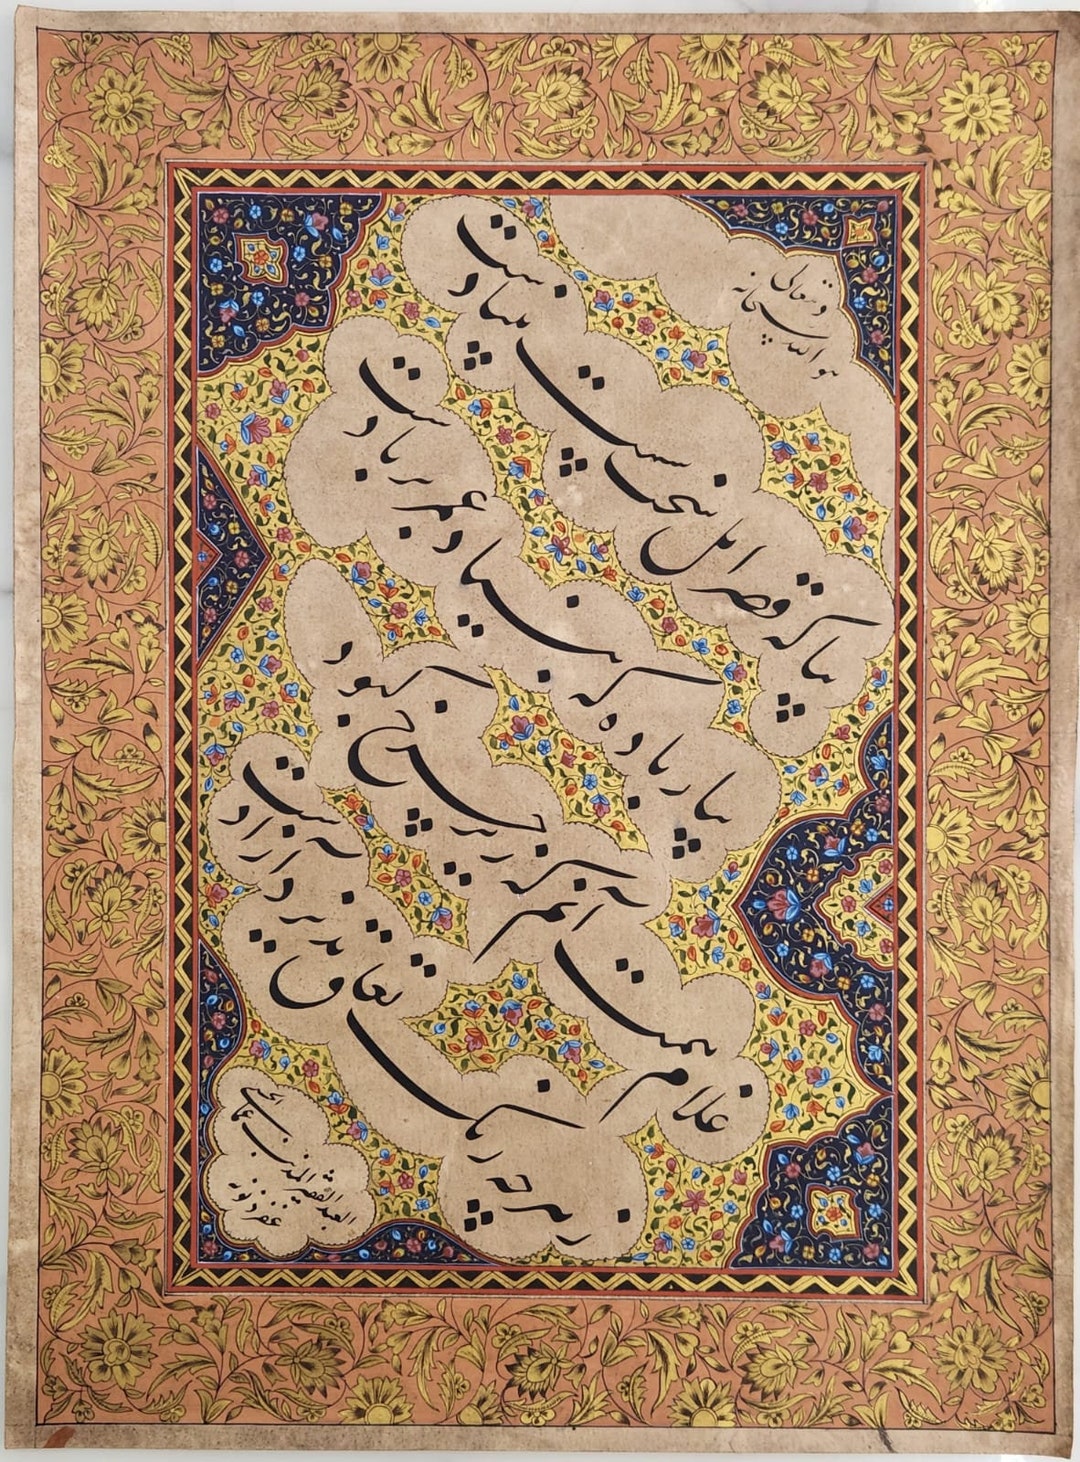 هو الله سبحانه و تعالی
بیا که قصر امل سخت سست بنیادست
بیار باده که بنیاد عمر بر بادست
غلام همت آنم که زیر چرخ کبود
ز هر چه رنگ تعلق پذیرد آزادست
العبد الفقیر المذنب عماد الحسنی
غفر ذنوبه